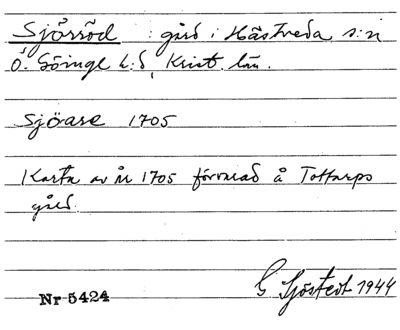 Sjörröd : gård i Hästveda s:n
Ö. Göinge h:d, Krist. län.
Sjöase 1705
Karta av år 1705 förvarad å Tottarps
gård.
Nr 5424 G Sjöstedt 1944